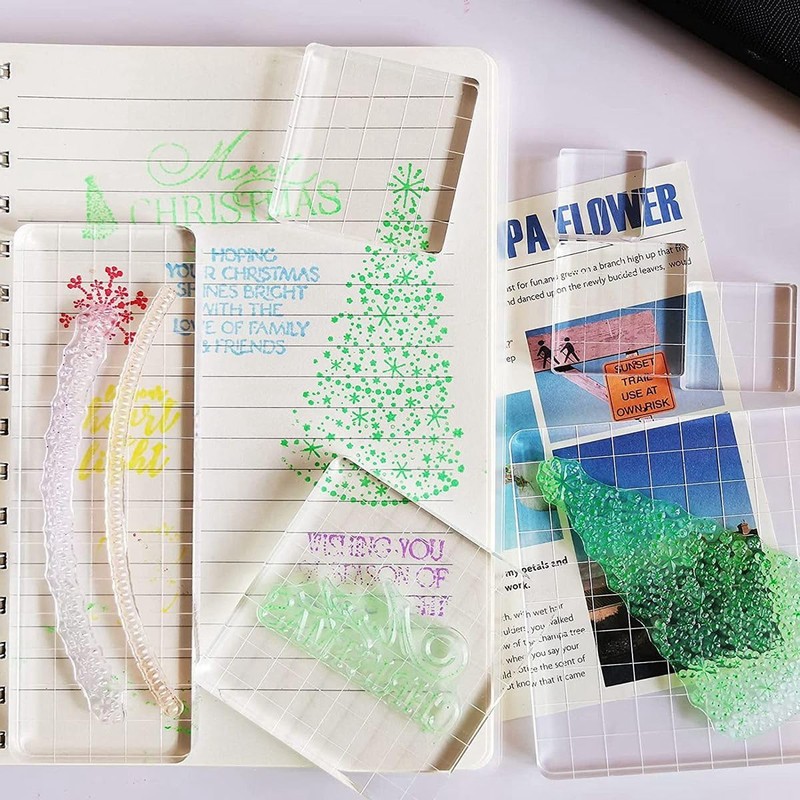 Merry
CHRISTMAS
HOPING
YOUR CHRISTMAS
SHINES BRIGHT
WITH THE
LOVE OF FAMILY
& FRIENDS
heart
light
WISHING YOU
SEASON OF
PA FLOWER
just for fun, and grew on a branch high up that tree
nd danced upon the newly budded leaves, would
?"
ep
SUNSET
TRAIL
USE AT
OWN RISK
my petals and
work.
h, with wet hair
oulders, you walked
ow of the champa tree
when you say your
ld notice the scent of
ot know that it came